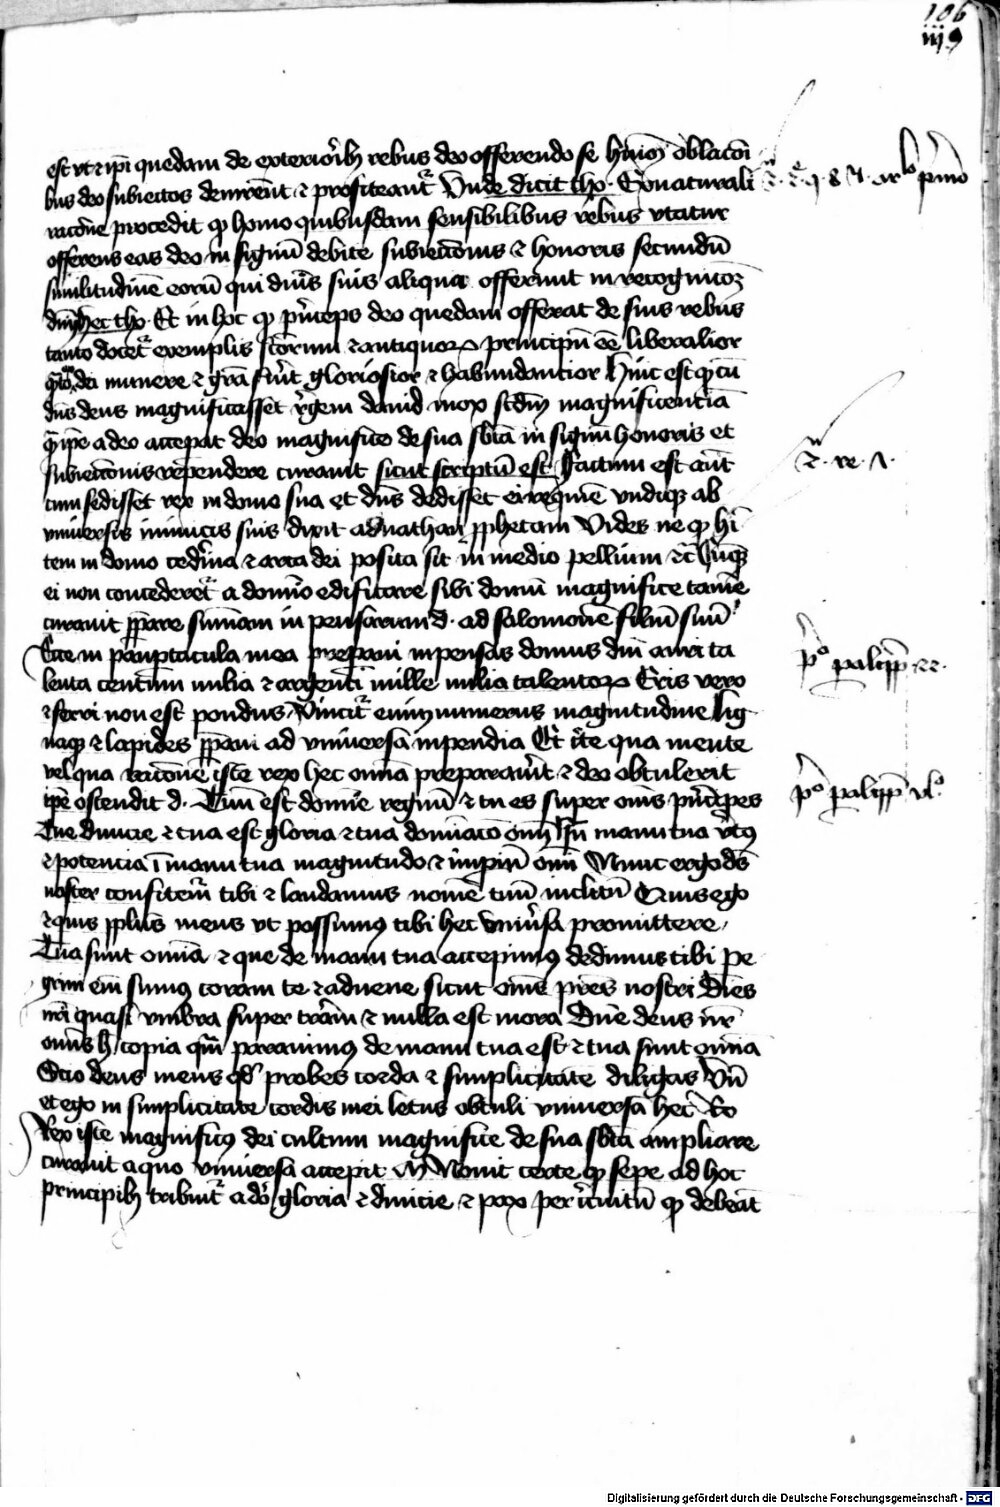 106
iiij 9
est vt et ipi quedam de exterioribus rebus deo offerendo se huiusmodi oblaconi
bus deo subiectos demonstrent et profiteantur Unde dicit tho. Ex naturali
racone procedit quod homo quibusdam sensibilibus rebus vtatur
offerens eas deo in signum debite subieccionis et honoris secundum
similitudinem eorum qui dominis suis aliqua offerunt in recognicionem
dominii hec tho. Et in hoc quod princeps deo quedam offerat de suis rebus
tanto docetur exemplis sanctorum et antiquorum principum esse liberalior
quanto dei munere et gratia fuerit gloriosior et habundantior Hinc est quod cum
dominus deus magnificasset regem dauid mox secundum magnificentiam
quam ipse a deo acceperat deo magnifice de sua substantia in signum honoris et
subieccionis rependere curauit sicut scriptum est Factum est autem
cum sedisset rex in domo sua et dominus dedisset ei requiem vndique ab
vniuersis inimicis suis dixit ad nathan prophetam Vides ne quod habi
tem in domo cedrina et arca dei posita sit in medio pellium etc Cumque
ei non concederetur a domino edificare sibi domum magnifice tamen
curauit preparare summam inpensarum d. ad salomonem filium suum
Ecce in paupertacula mea preparaui inpensas domus domini auri ta
lenta centum milia et argenti mille milia talentorum Eris vero
et ferri non est pondus Vincitur enim numerus magnitudine Lig
naque et lapides preparaui ad vniuersa inpendia Et iterum qua mente
vel qua racione iste rex hec omnia preparauerit et deo obtulerit
ipse ostendit d. Tuum est domine regnum et tu es super omnes principes
Tue diuicie et tua est gloria et tua dominacio omnium In manu tua virtus
et potencia in manu tua magnitudo et imperium omnium Nunc ergo deus
noster confitemur tibi et laudamus nomen tuum inclitum Quis ego
et quis populus meus vt possumus tibi hec vniuersa promittere
Tua sunt omnia et que de manu tua accepimus dedimus tibi Pe
grini enim sumus coram te et aduene sicut omnes patres nostri Dies
nostri quasi vmbra super terram et nulla est mora Domine deus noster
omnis hec copia quam parauimus de manu tua est et tua sunt omnia
Scio deus meus quod probes corda et simplicitatem diligas Vnde
et ego in simplicitate cordis mei letus obtuli vniuersa hec Ro
Rex iste magnificus dei cultum magnifice de sua substantia ampliare
curauit a quo vniuersa accepit Nouit certe quod sepe ad hoc
principibus tribuitur a deo gloria et diuicie et pax per circuitum quod debeant
2. re. 7.
po palipp 22.
po palipp vlo
Digitalisierung gefördert durch die Deutsche Forschungsgemeinschaft - DFG